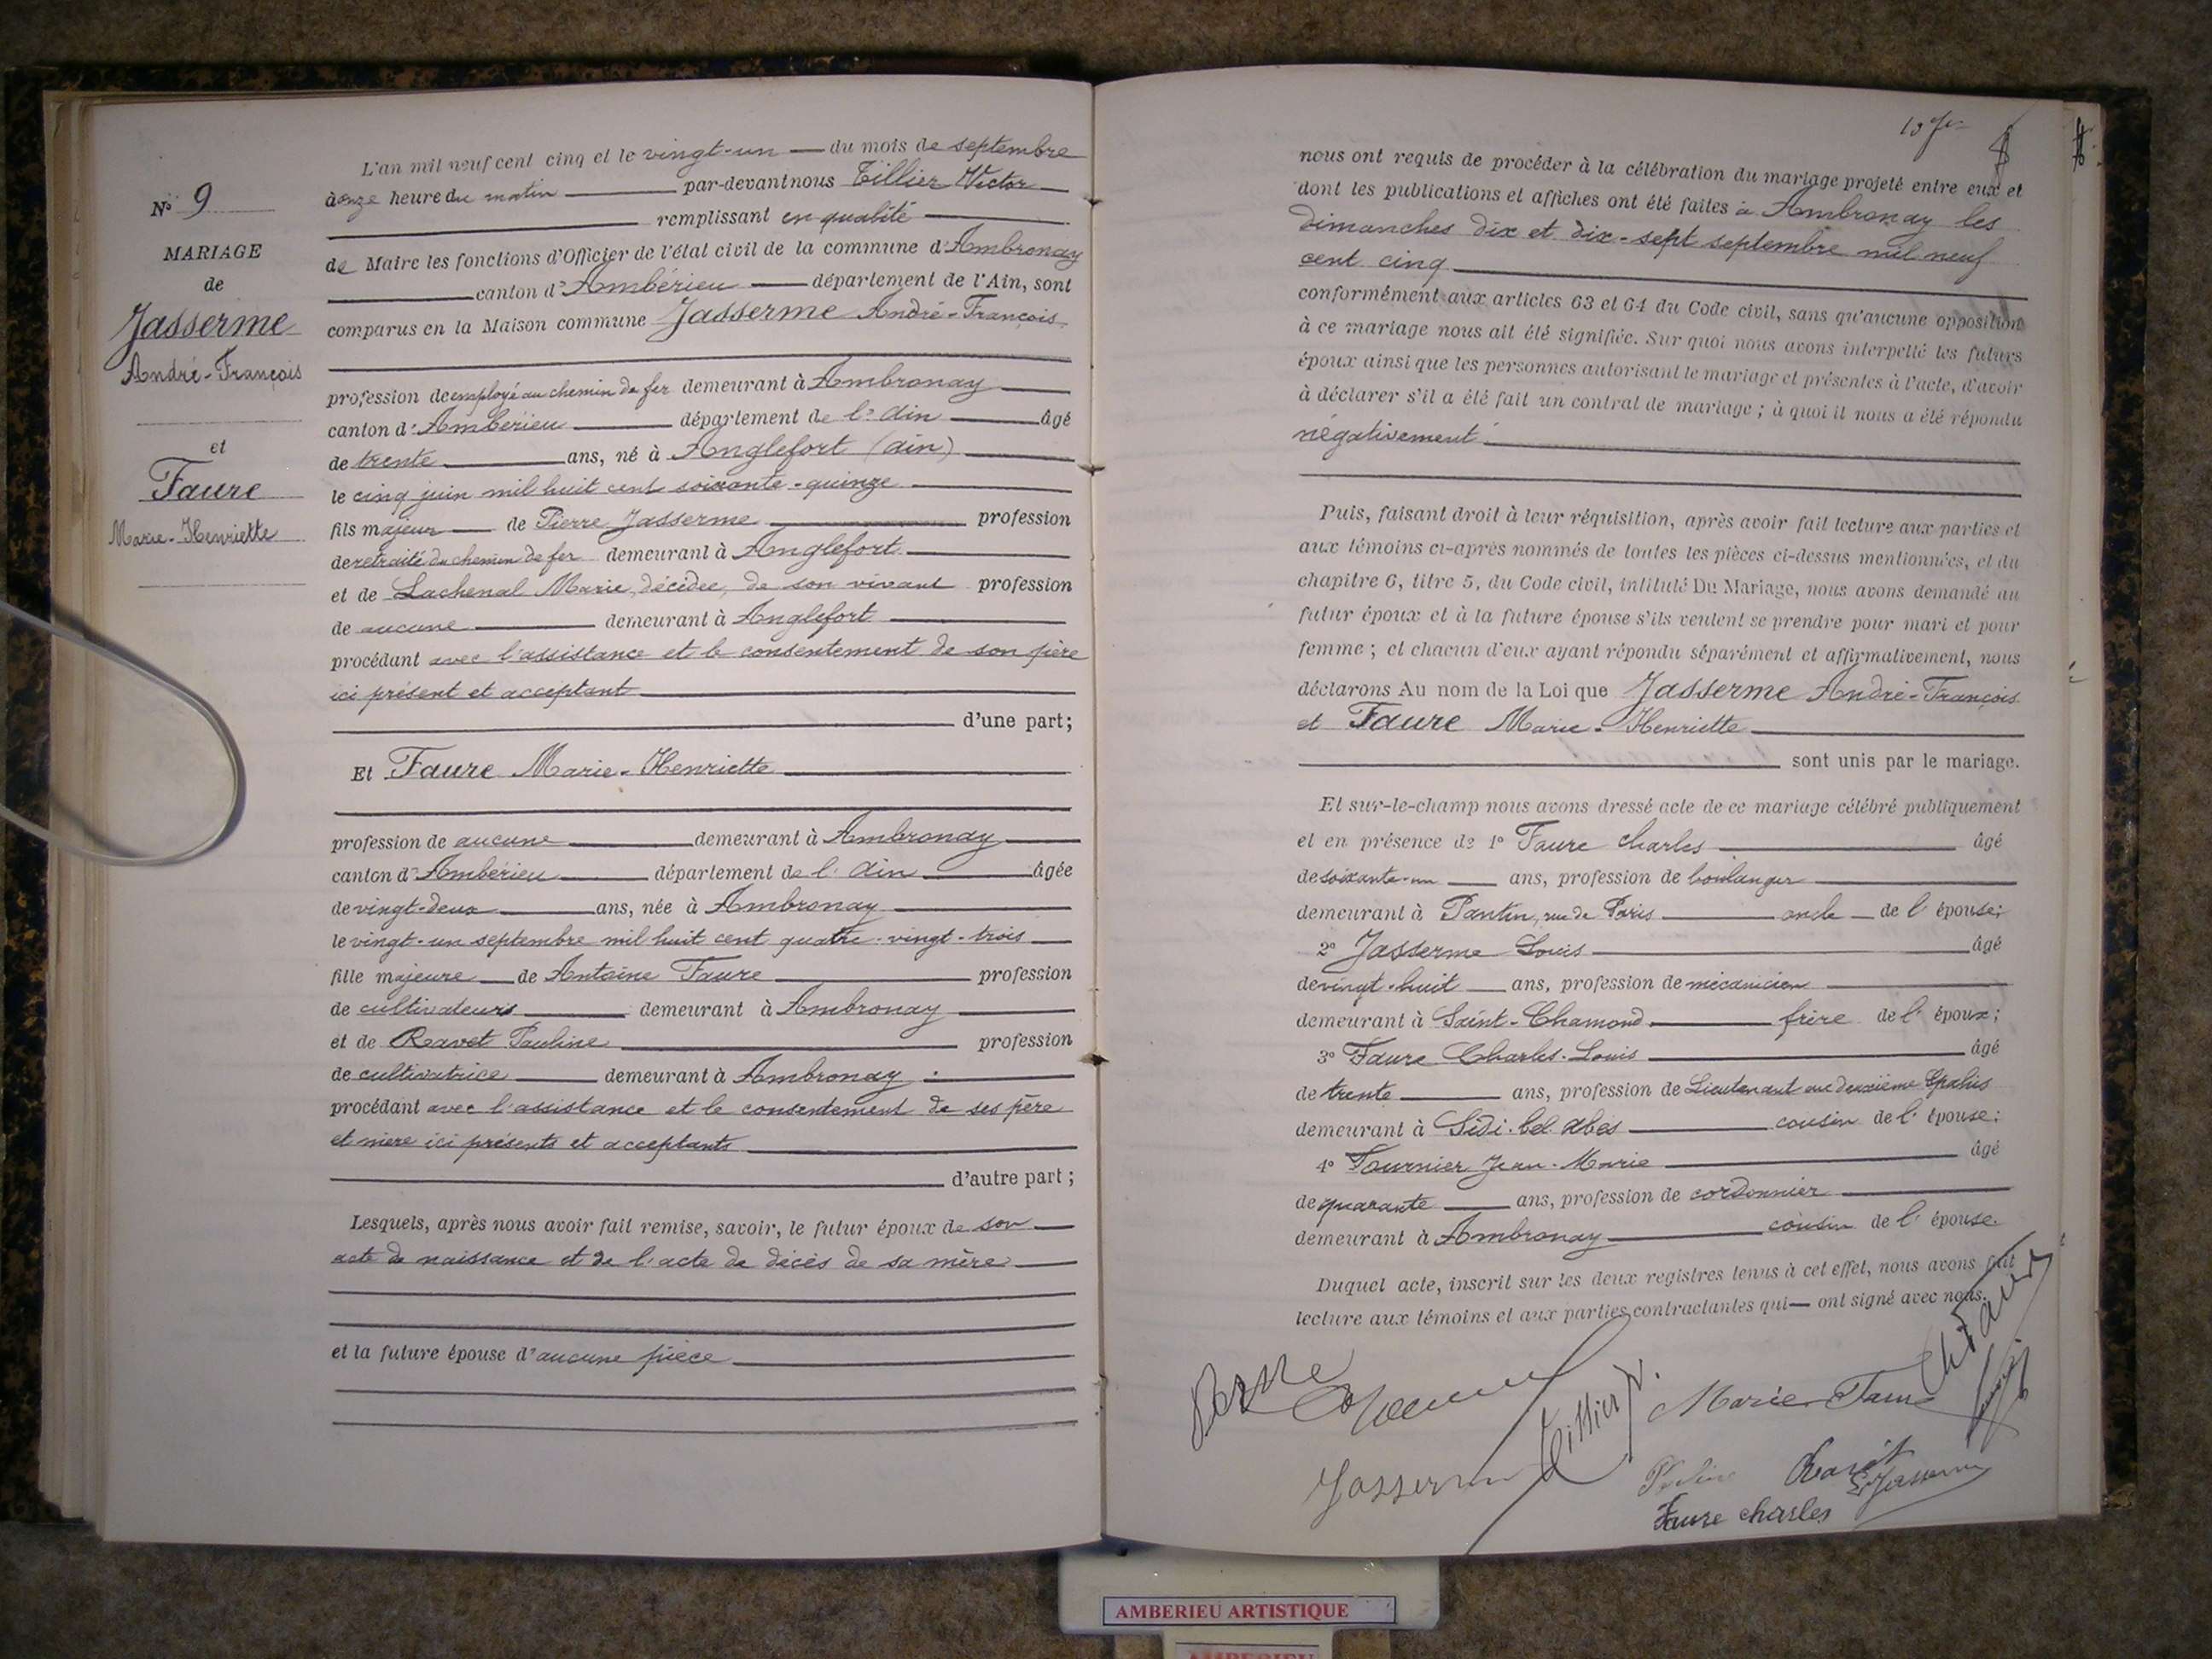 N° 9
MARIAGE
de
Jasserme
André-François
et
Faure
Marie-Henriette
L'an mil neuf cent cinq et le vingt-un du mois de septembre
à onze heure du matin par-devant nous Tillier Victor
remplissant en qualité
de Maire les fonctions d'Officier de l'état civil de la commune d'Ambronay
canton d'Ambérieu département de l'Ain, sont
comparus en la Maison commune Jasserme André-François
profession de employé au chemin de fer demeurant à Ambronay
canton d'Ambérieu département de l'ain âgé
de trente ans, né à Anglefort (ain)
le cinq juin mil huit cent soixante-quinze
fils majeur de Pierre Jasserme profession
de retraité du chemin de fer demeurant à Anglefort
et de Lachenal Marie, décédée, de son vivant profession
de aucune demeurant à Anglefort
procédant avec l'assistance et le consentement de son père
ici présent et acceptant
d'une part;
Et Faure Marie-Henriette
profession de aucune demeurant à Ambronay
canton d'Ambérieu département de l'Ain âgée
de vingt-deux ans, née à Ambronay
le vingt-un septembre mil huit cent quatre-vingt-trois
fille majeure de Antoine Faure profession
de cultivateurs demeurant à Ambronay
et de Ravet Pauline profession
de cultivatrice demeurant à Ambronay
procédant avec l'assistance et le consentement de ses père
et mère ici présents et acceptants
d'autre part;
Lesquels, après nous avoir fait remise, savoir, le futur époux de son
acte de naissance et de l'acte de décès de sa mère
et la future épouse d'aucune pièce
nous ont requis de procéder à la célébration du mariage projeté entre eux et
dont les publications et affiches ont été faites à Ambronay les
dimanches dix et dix-sept septembre mil neuf
cent cinq
conformément aux articles 63 et 64 du Code civil, sans qu'aucune opposition
à ce mariage nous ait été signifiée. Sur quoi nous avons interpellé les futurs
époux ainsi que les personnes autorisant le mariage et présentes à l'acte, d'avoir
à déclarer s'il a été fait un contrat de mariage; à quoi il nous a été répondu
négativement
Puis, faisant droit à leur réquisition, après avoir fait lecture aux parties et
aux témoins ci-après nommés de toutes les pièces ci-dessus mentionnées, et du
chapitre 6, titre 5, du Code civil, intitulé Du Mariage, nous avons demandé au
futur époux et à la future épouse s'ils veulent se prendre pour mari et pour
femme; et chacun d'eux ayant répondu séparément et affirmativement, nous
déclarons Au nom de la Loi que Jasserme André-François
et Faure Marie-Henriette
sont unis par le mariage.
Et sur-le-champ nous avons dressé acte de ce mariage célébré publiquement
et en présence de 1° Faure Charles âgé
de soixante-un ans, profession de boulanger
demeurant à Pantin, rue de Paris oncle de l'épouse;
2° Jasserme Louis âgé
de vingt-huit ans, profession de mécanicien
demeurant à Saint-Chamond frère de l'époux;
3° Faure Charles-Louis âgé
de trente ans, profession de Lieutenant au deuxième Spahis
demeurant à Sidi-bel-abès cousin de l'épouse;
4° Fournier Jean-Marie âgé
de quarante ans, profession de cordonnier
demeurant à Ambronay cousin de l'épouse.
Duquel acte, inscrit sur les deux registres tenus à cet effet, nous avons fait
lecture aux témoins et aux parties contractantes qui ont signé avec nous.
Tillier V.
Marie Faure
Ch Faure
Jasserme
Ravet
L. Jasserme
Faure charles
AMBERIEU ARTISTIQUE
AMBERIEU